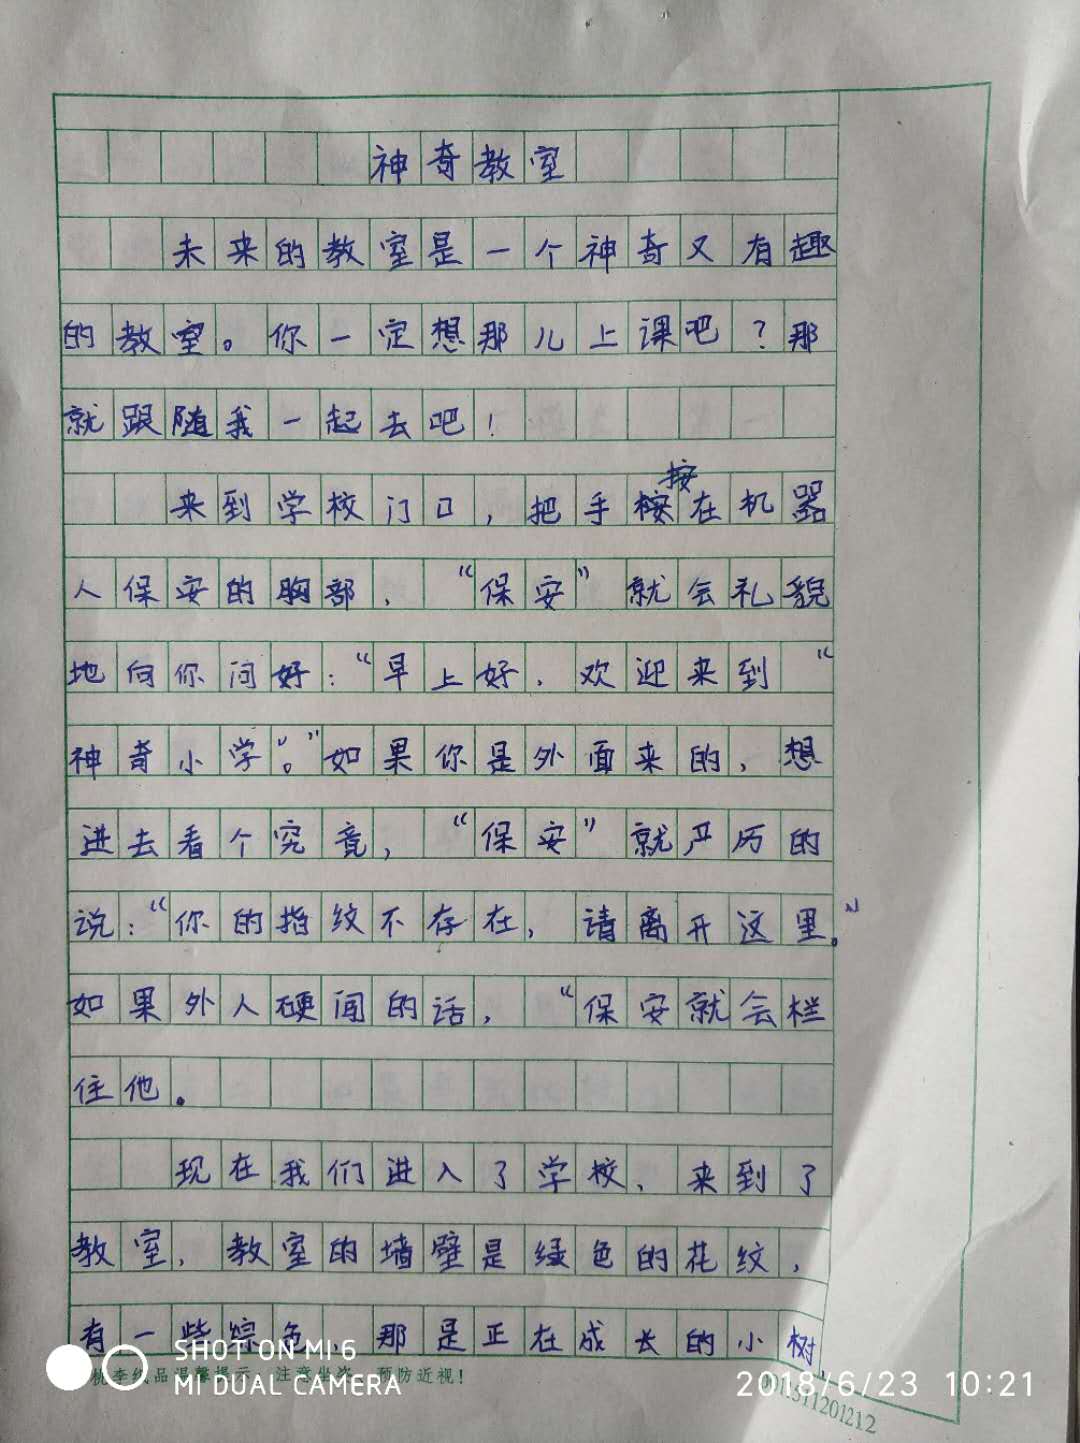 神奇教室
未来的教室是一个神奇又有趣
的教室。你一定想那儿上课吧？那
就跟随我一起去吧！
按
来到学校门口，把手桉在机器
人保安的胸部，“保安”就会礼貌
地向你问好：“早上好，欢迎来到“
神奇小学”。”如果你是外面来的，想
进去看个究竟，“保安”就严历的
说：“你的指纹不存在，请离开这里。”
如果外人硬闯的话，“保安就会栏
住他。
现在我们进入了学校，来到了
教室，教室的墙壁是绿色的花纹，
有一些综色，那是正在成长的小树
桃李纸品温馨提示：注意坐姿 预防近视！
SHOT ON MI 6
MI DUAL CAMERA
2018/6/23 10:21